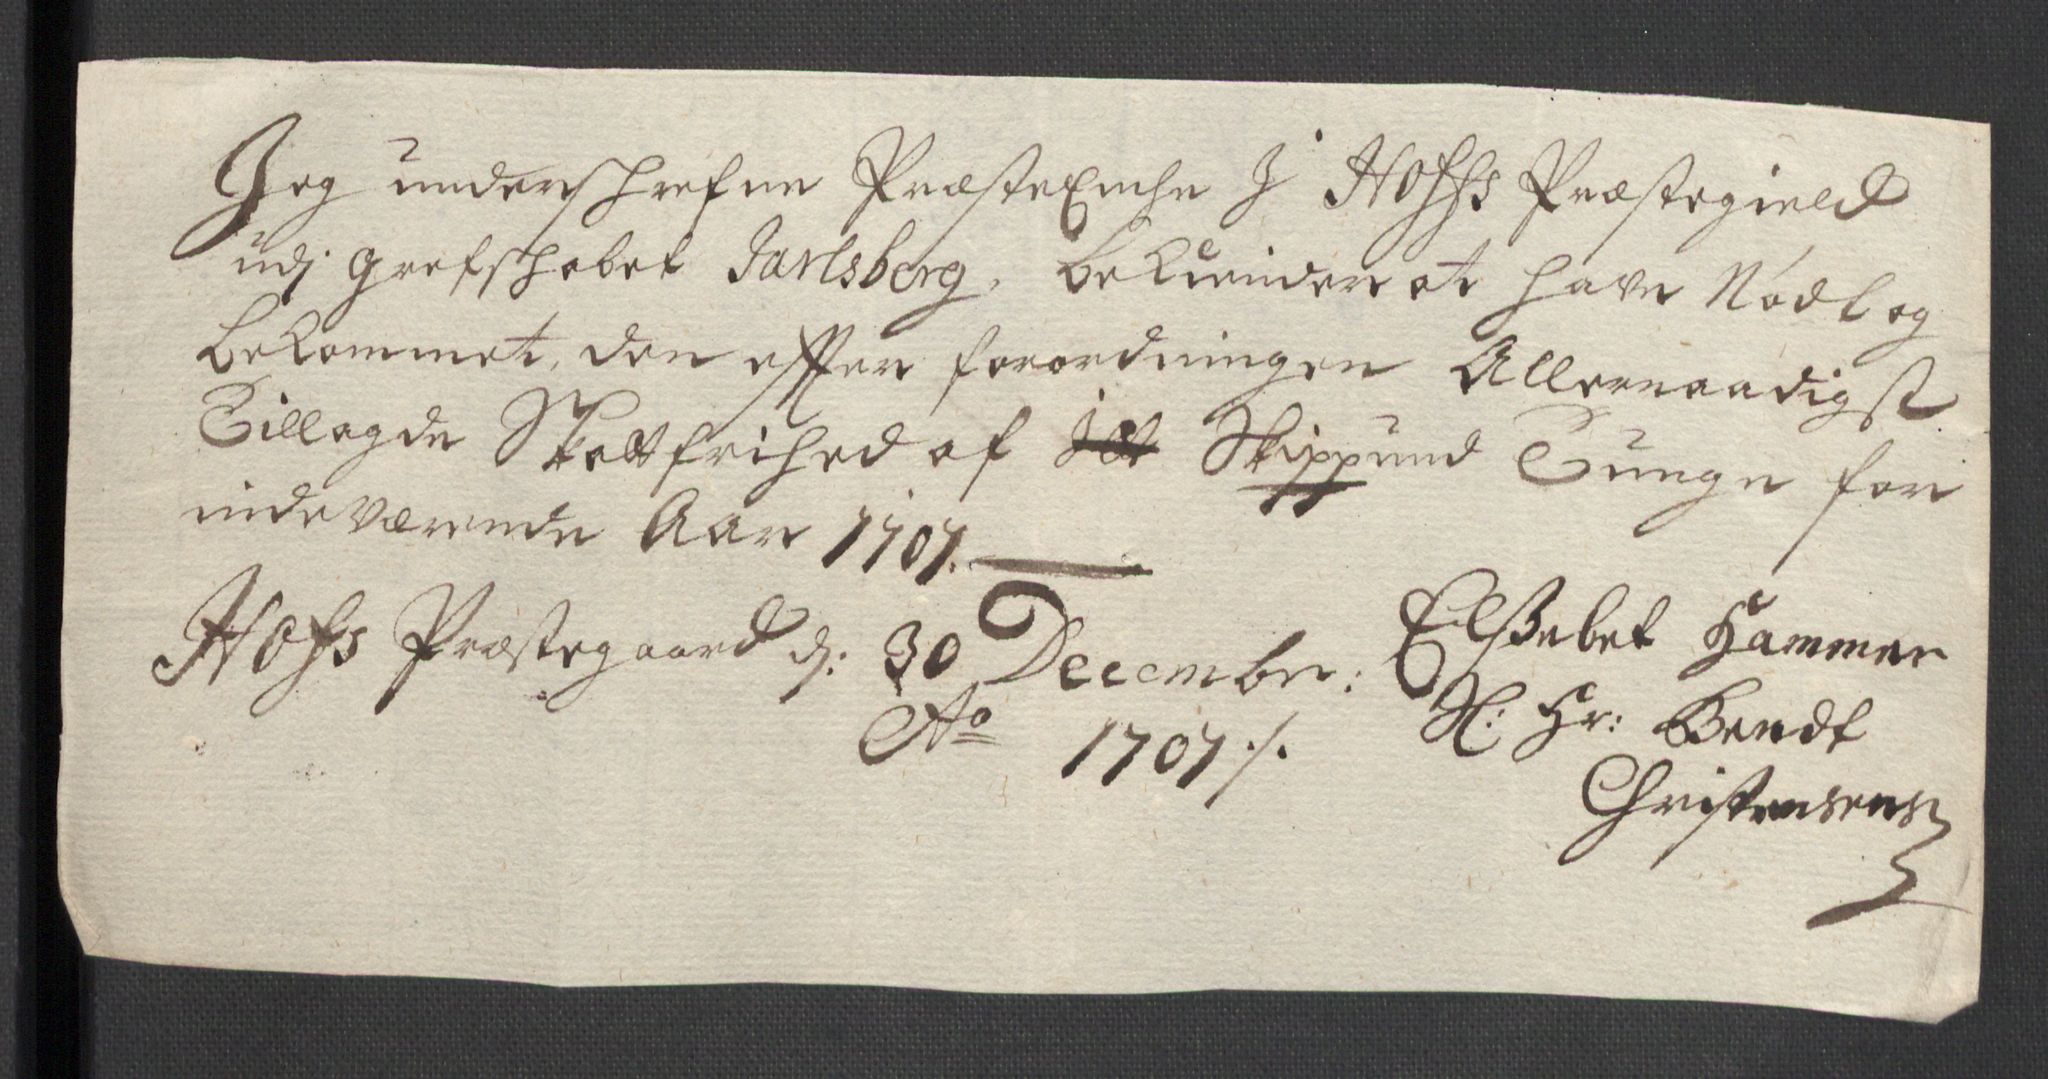 Jeg underschrefne PræsteEnche J Hoffs Præstegield
udj grefschabet Jarlsberg, bekiender at hafve Nødt og
bekommet, den effter forordningen Allernaadigst
Tillagde Skattfrihed af Skippund Tunge for
indeværende Aar 1707.
Hofs Præstegaard dj: 30 December: Elssebet Hammer
Ao 1707 ./. Sl: Hr: Bendt
Christensens